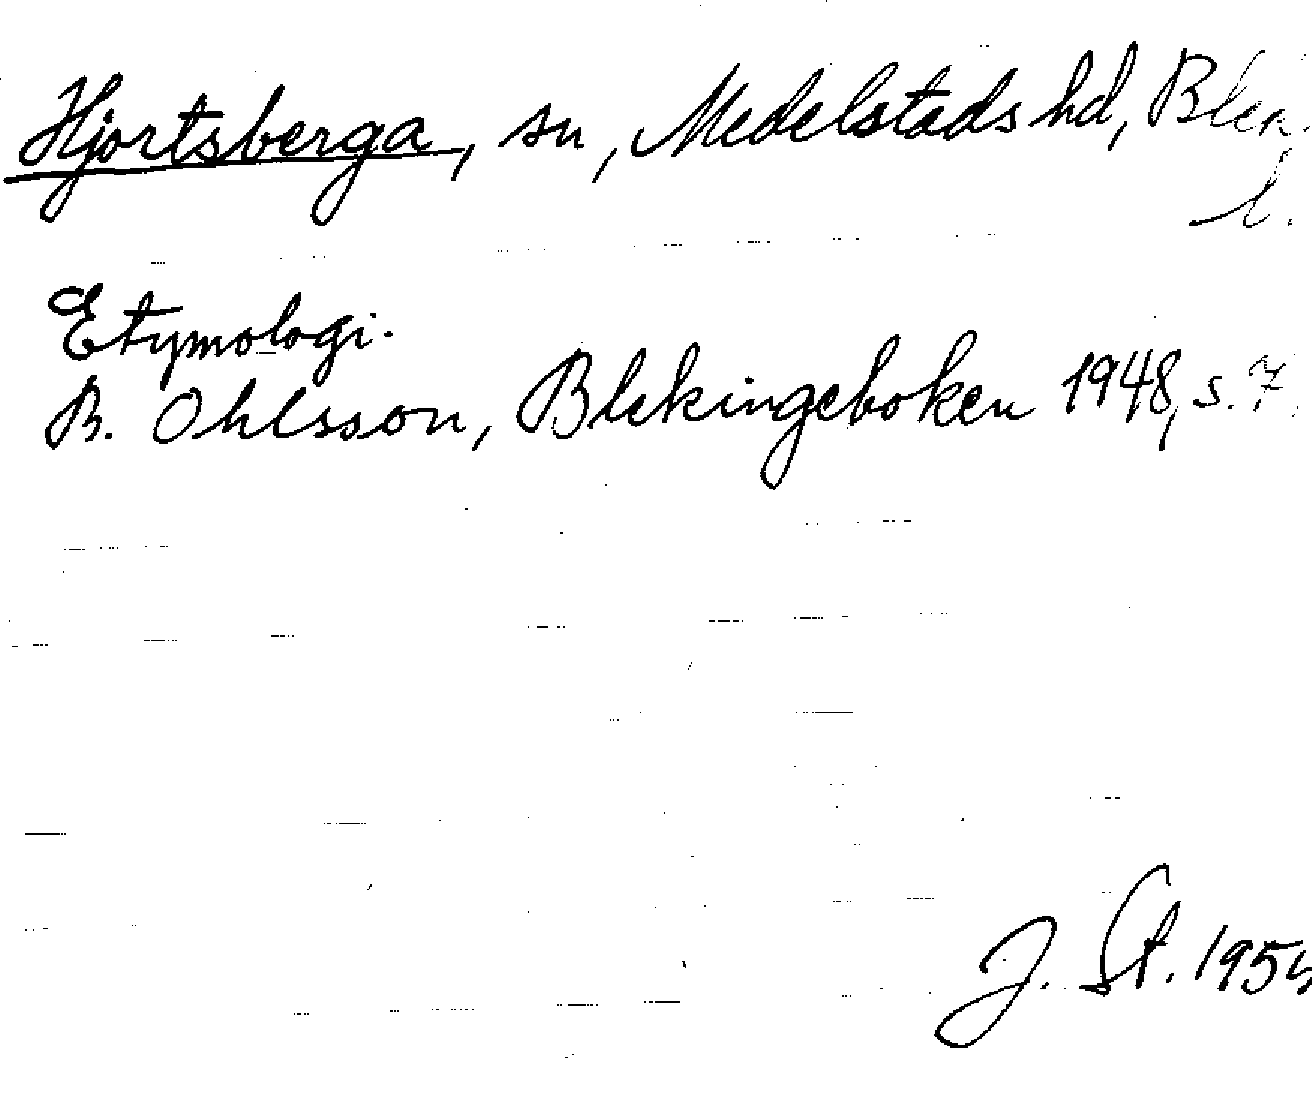 Hjortsberga, sn, Medelstads hd, Blek.
l.
Etymologi.
B. Ohlsson, Blekingeboken 1948, s. 7.
J. St. 1955